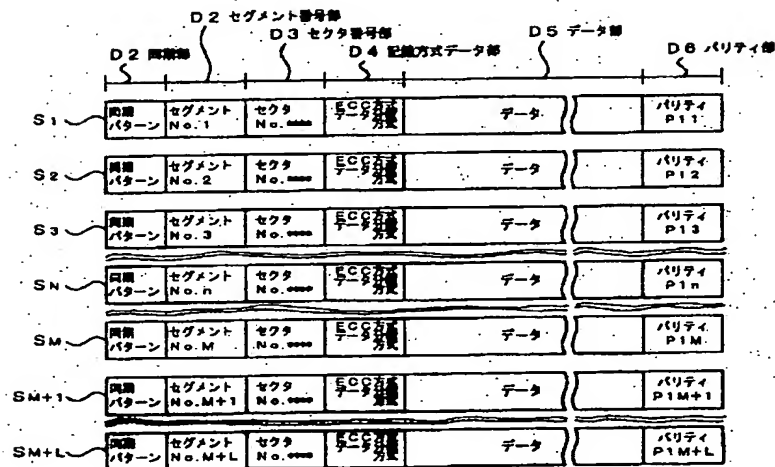 D2 セグメント番号部
D3 セクタ番号部
D2 同期部
D4 記録方式データ部
D5 データ部
D6 パリティ部
S1
同期
パターン
セグメント
No.1
セクタ
No.****
ECC方式
データ
方式
データ
パリティ
P11
S2
同期
パターン
セグメント
No.2
セクタ
No.****
ECC方式
データ
方式
データ
パリティ
P12
S3
同期
パターン
セグメント
No.3
セクタ
No.****
ECC方式
データ
方式
データ
パリティ
P13
SN
同期
パターン
セグメント
No.n
セクタ
No.****
ECC方式
データ
方式
データ
パリティ
P1n
SM
同期
パターン
セグメント
No.M
セクタ
No.****
ECC方式
データ
方式
データ
パリティ
P1M
SM+1
同期
パターン
セグメント
No.M+1
セクタ
No.****
ECC方式
データ
方式
データ
パリティ
P1M+1
SM+L
同期
パターン
セグメント
No.M+L
セクタ
No.****
ECC方式
データ
方式
データ
パリティ
P1M+L